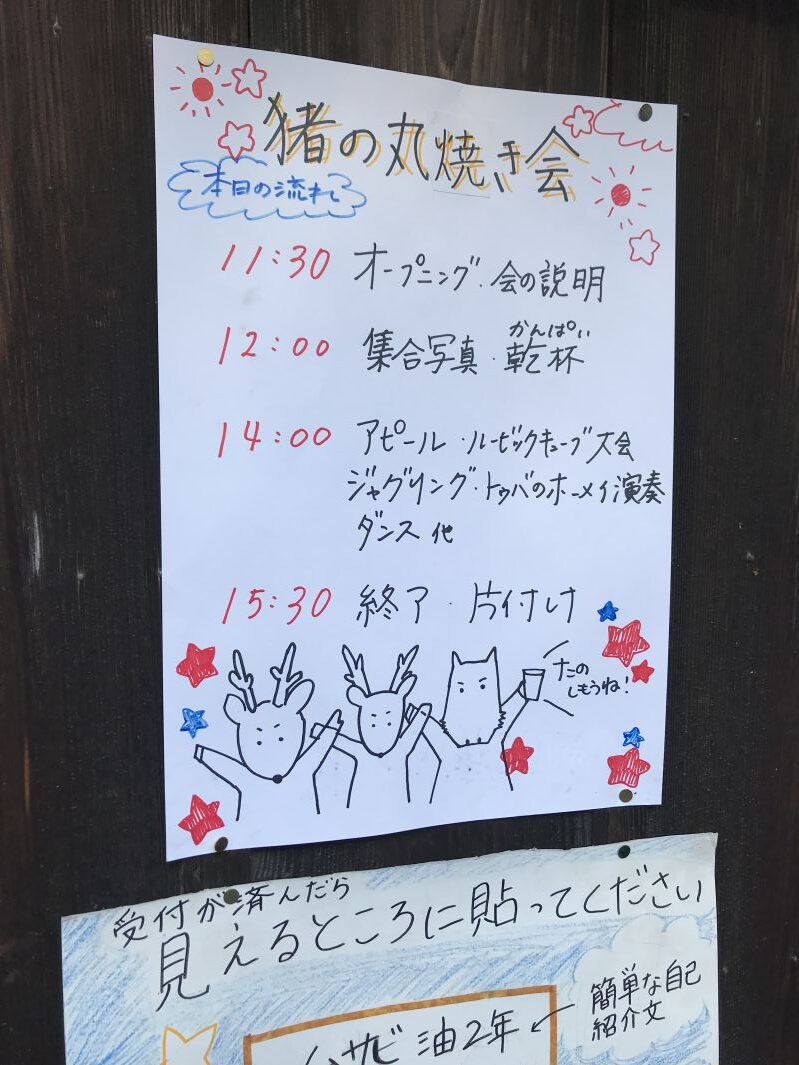 猪の丸焼き会
本日の流れ
11:30 オープニング・会の説明
かんぱい
12:00 集合写真・乾杯
14:00 アピール・ルービックキューブ大会
ジャグリング・トゥバのホーメイ演奏
ダンス 他
15:30 終了・片付け
たの
しもうね!
受付が済んだら
見えるところに貼ってください
簡単な自己
紹介文
ムササビ 油2年